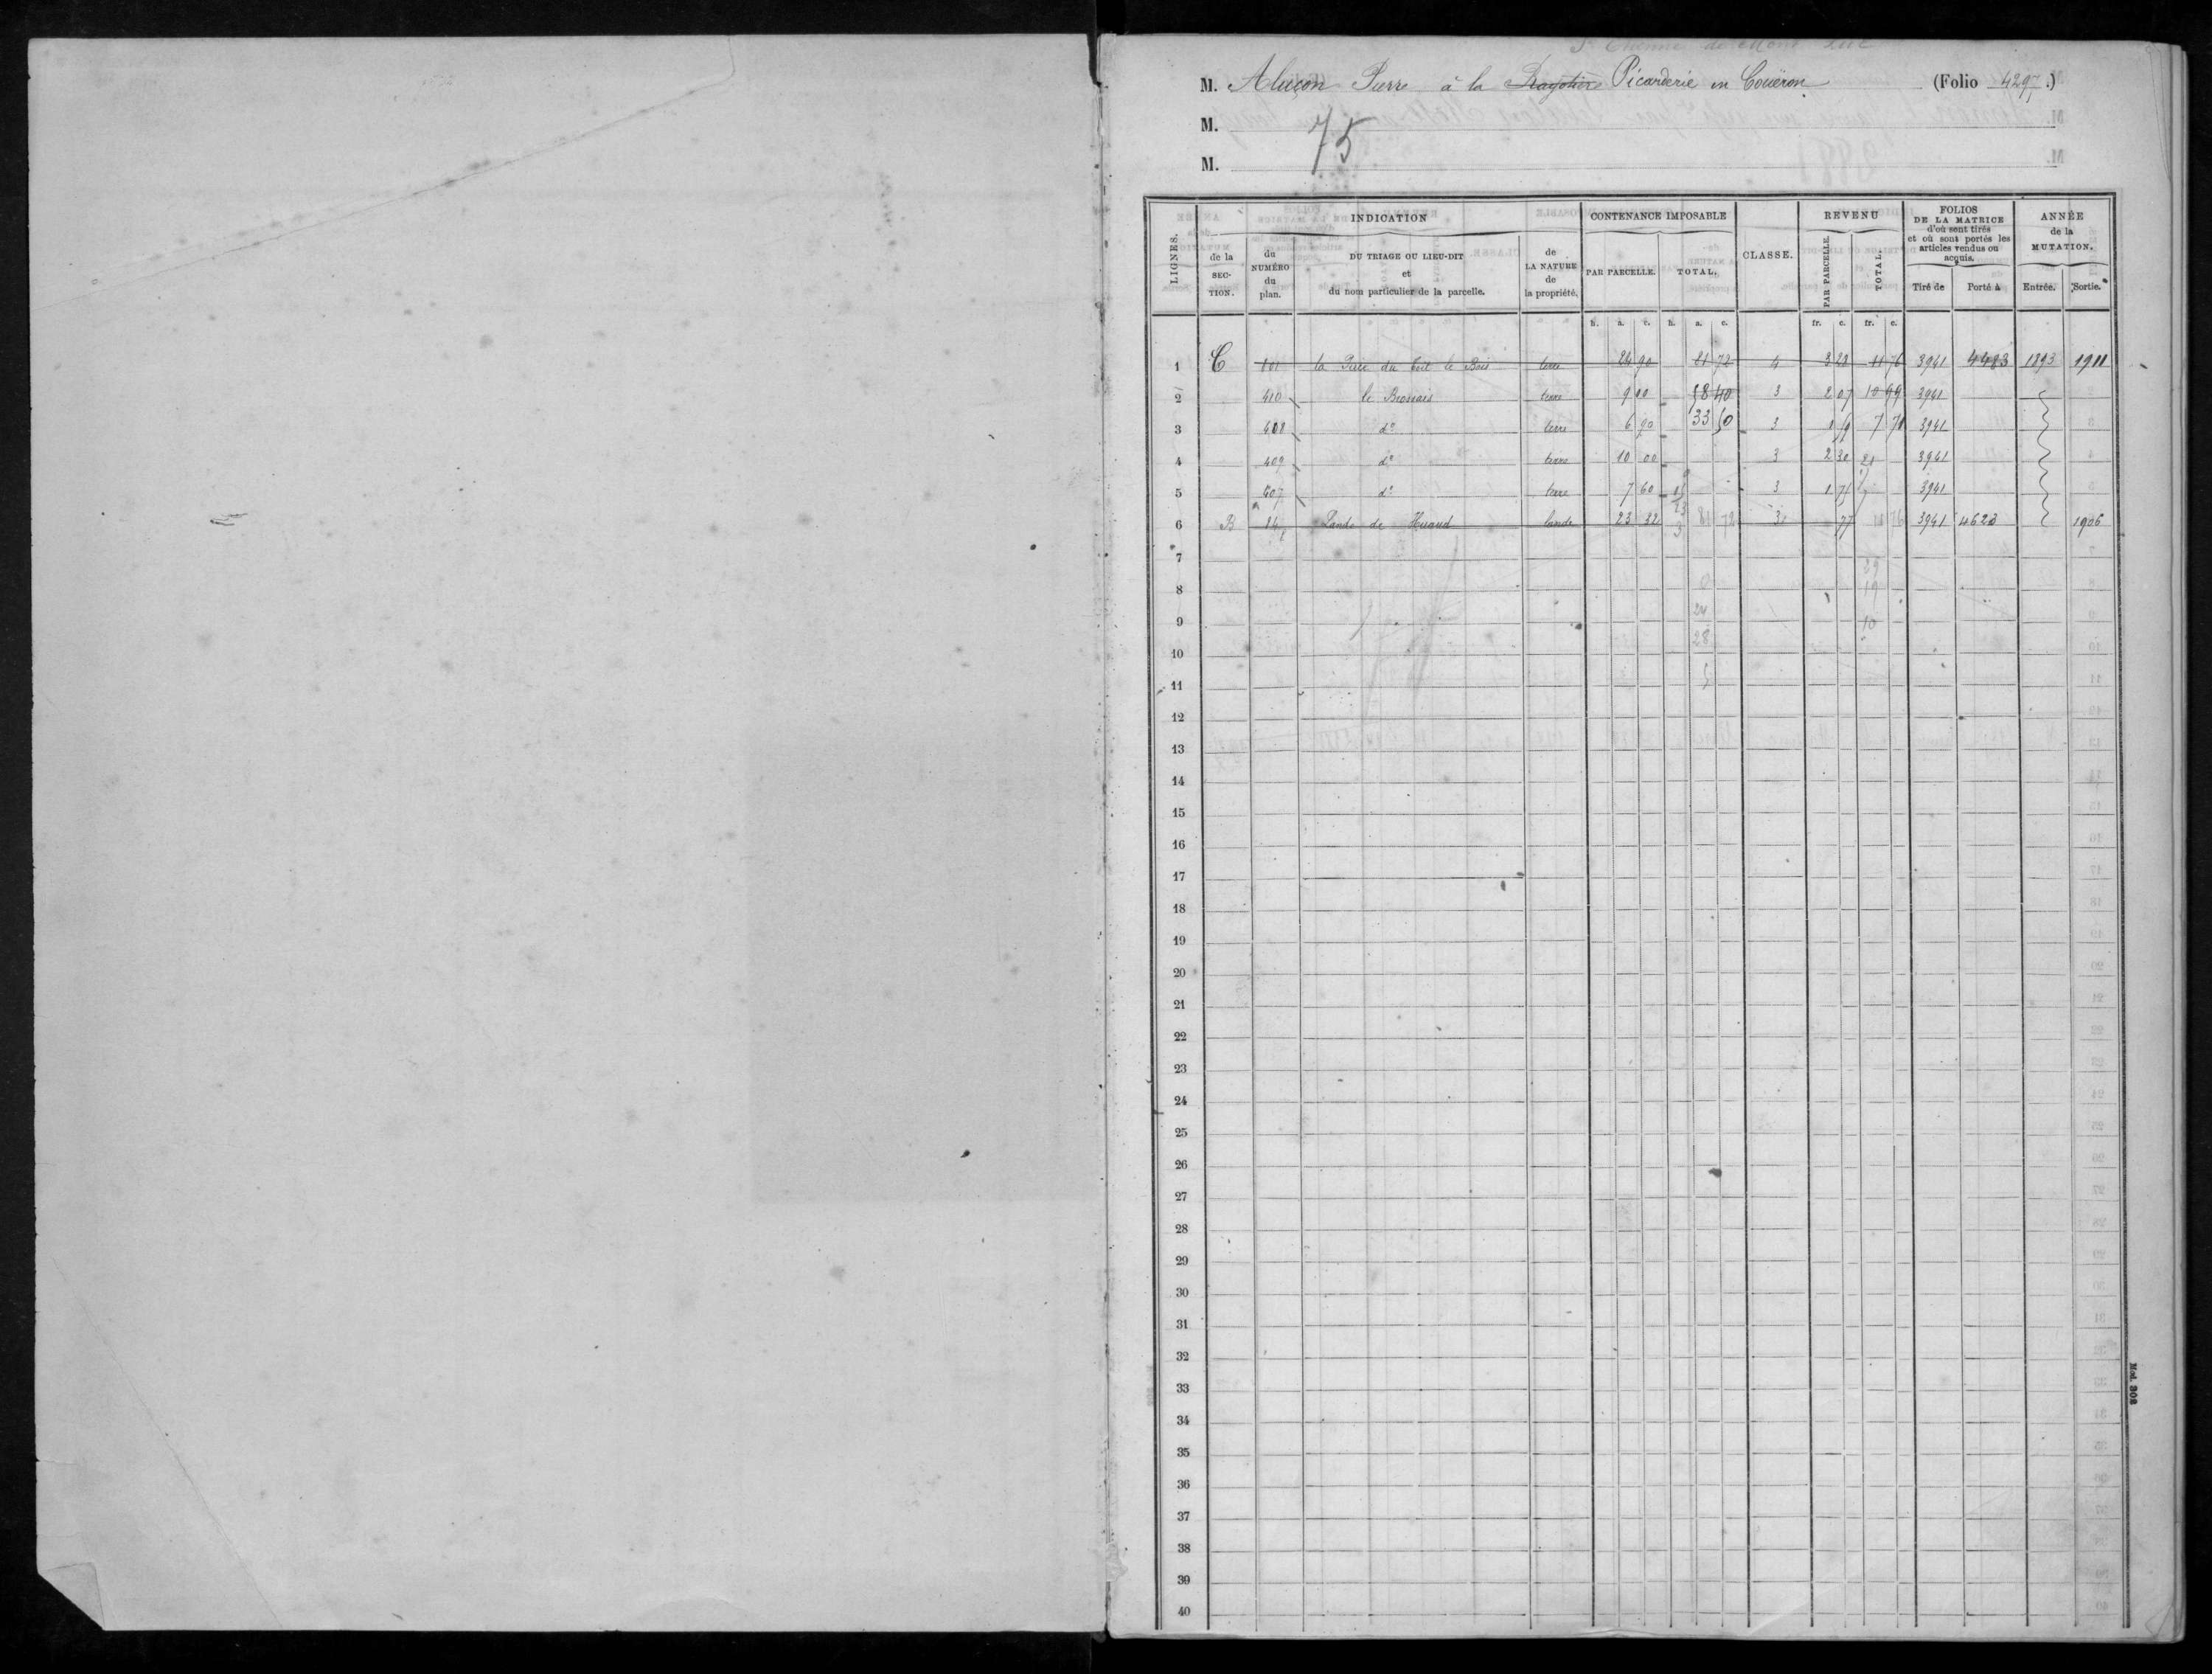 St Etienne de Mont Luc
M. Aluçon Pierre à la Picarderie en Couëron (Folio 4297.)
M.
75
M.
LIGNES.
INDICATION
CONTENANCE IMPOSABLE
CLASSE.
REVENU
FOLIOS DE LA MATRICE d'où sont tirés et où sont portés les articles vendus ou acquis.
ANNÉE de la MUTATION.
de la SECTION.
du NUMÉRO du plan.
DU TRIAGE OU LIEU-DIT et du nom particulier de la parcelle.
de LA NATURE de la propriété.
PAR PARCELLE.
TOTAL.
PAR PARCELLE.
TOTAL.
Tiré de
Porté à
Entrée.
Sortie.
h. a. c. h. a. c. fr. c. fr. c.
1 C 101 la Pièce du le Bois terre 24 90 81 72 4 3 23 11 76 3941 4483 1893 1911
2 410 le Brossais terre 9 00 58 40 3 2 07 10 99 3941
3 408 do terre 6 90 33 50 3 1 59 7 76 3941
4 409 do terre 10 00 3 2 30 3941
5 407 do terre 7 60 3 1 75 3941
6 B 14 Lande de Huaud lande 23 32 81 72 3 77 11 76 3941 4623 1906
7
8
9
10
11
12
13
14
15
16
17
18
19
20
21
22
23
24
25
26
27
28
29
30
31
32
33
34
35
36
37
38
39
40
29
19
10
24
28
Mod. 308